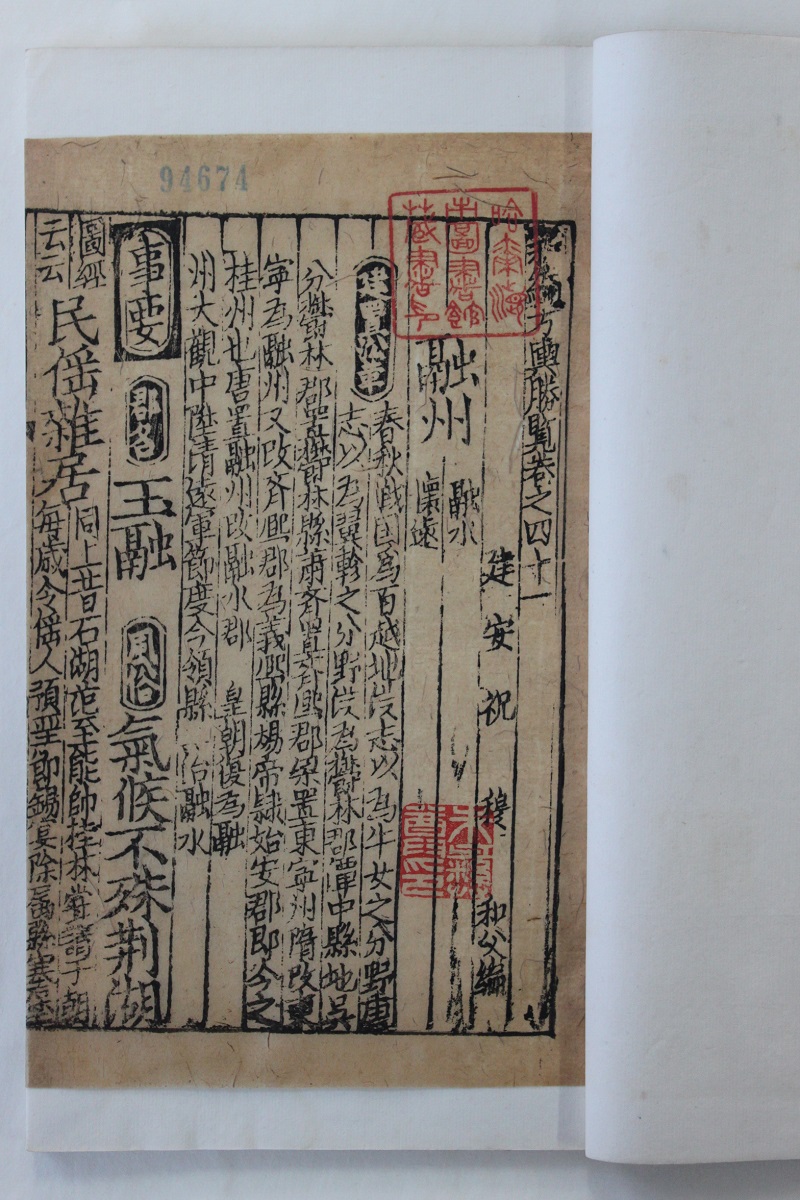 94674
新編方輿勝覽卷之四十一
建安祝穆和父編
融州 融水
懷遠
建置沿革 春秋戰国為百越地漢志以為牛女之分野唐
志以為翼軫之分野漢為鬱林郡潭中縣地吳
分鬱林郡置鬱林縣蕭齊置齊熙郡梁置東寧州隋改東
寧為融州又改齊熙郡為義熙縣楊帝隸始安郡即今之
桂州也唐置融州改融水郡 皇朝復為融
州大觀中陞清遠軍節度今領縣 治融水
事要 郡名 玉融 風俗 氣候不殊荆湖
圖經
云云
民傜雜居 同上昔石湖范至能帥桂林
每歲令傜人預至節錫宴除